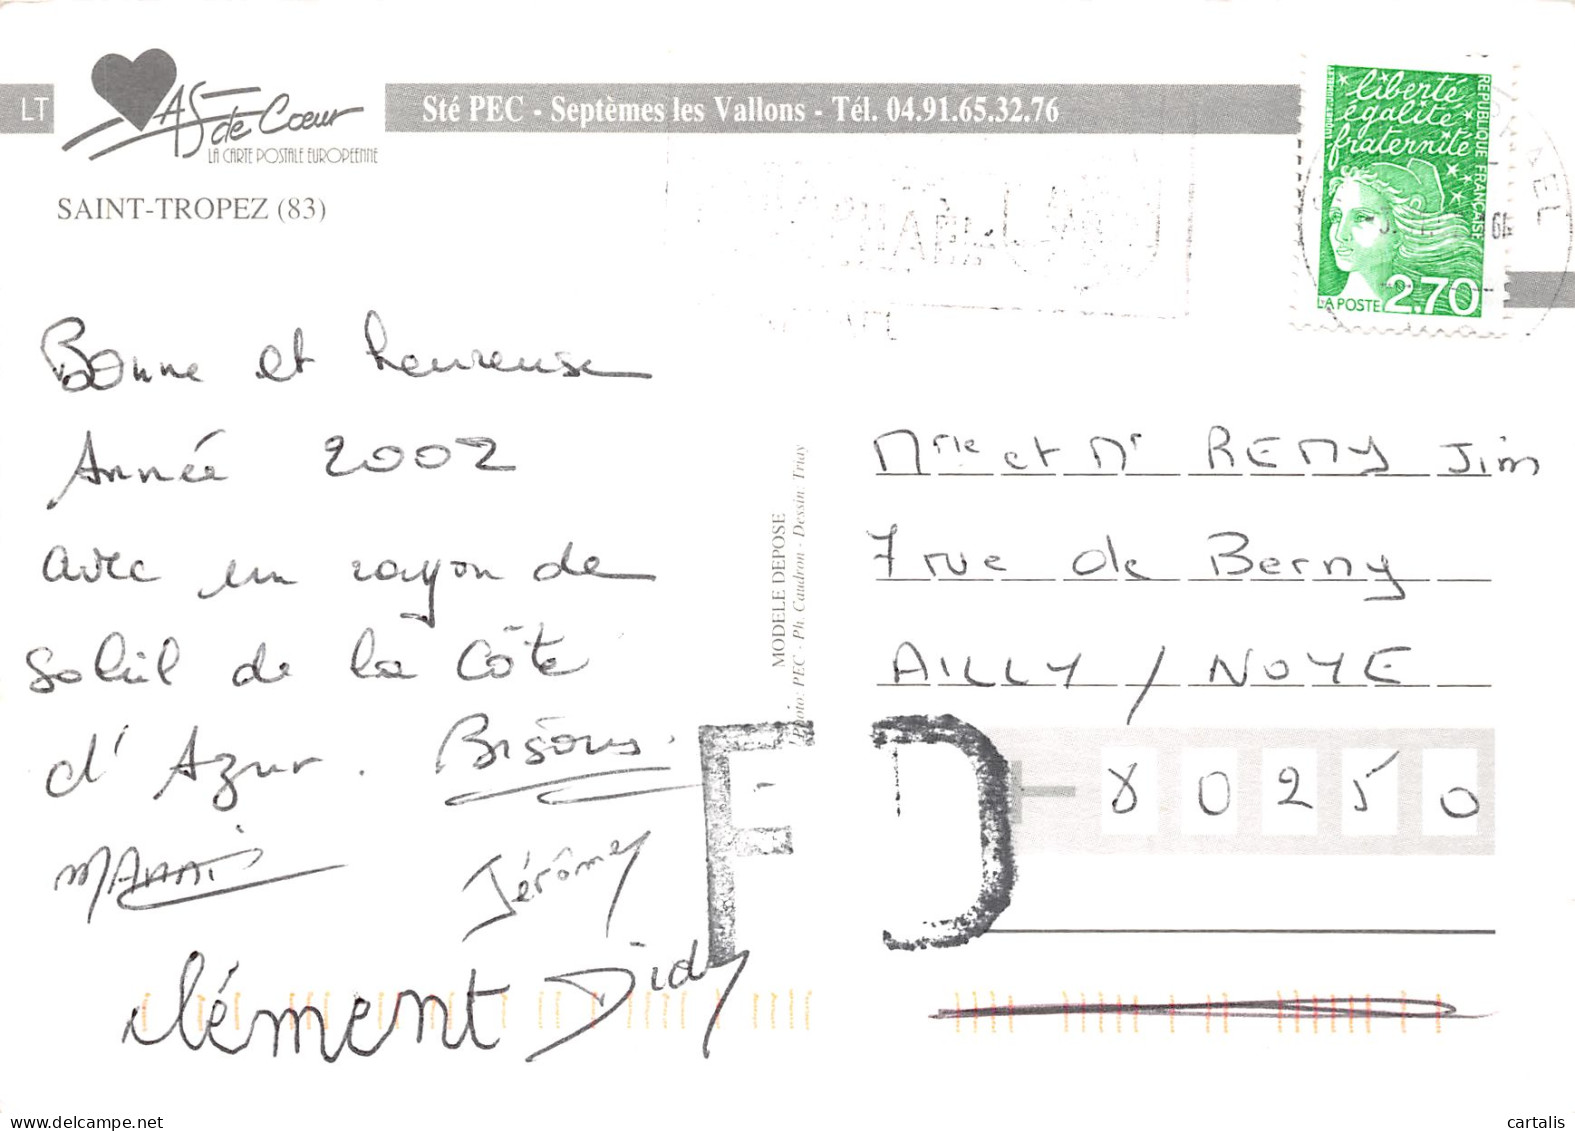 LT
AS de Cœur
LA CARTE POSTALE EUROPEENNE
Sté PEC - Septèmes les Vallons - Tél. 04.91.65.32.76
SAINT-TROPEZ (83)
liberté
égalité
fraternité
REPUBLIQUE FRANÇAISE
LA POSTE 2,70
Bonne et heureuse
Année 2002
avec un rayon de
soleil de la Côte
d'Azur. Bisous.
Jérôme
Clément Didy
MODELE DEPOSE
Photo: PEC - Ph. Caudron - Dessin: Triay
Mme et Mr REMY Jim
7 rue de Berny
AILLY / NOYE
80250
F D
cartalis